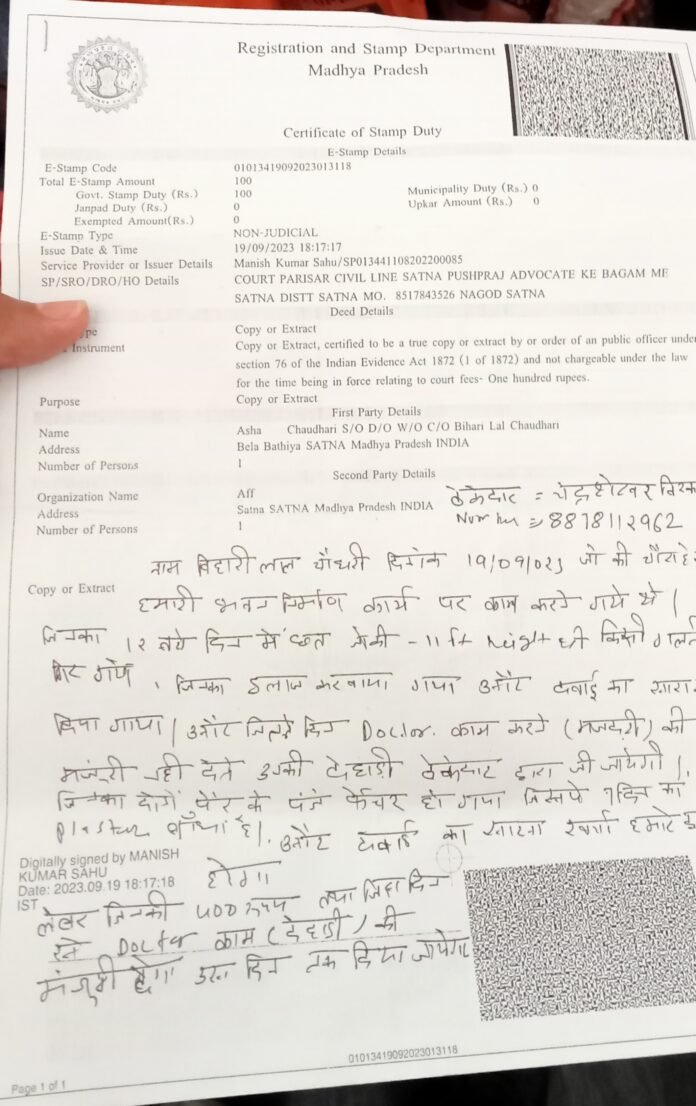 Registration and Stamp Department
Madhya Pradesh
Certificate of Stamp Duty
E-Stamp Details
E-Stamp Code 01013419092023013118
Total E-Stamp Amount 100
Govt. Stamp Duty (Rs.) 100 Municipality Duty (Rs.) 0
Janpad Duty (Rs.) 0 Upkar Amount (Rs.) 0
Exempted Amount(Rs.) 0
E-Stamp Type NON-JUDICIAL
Issue Date & Time 19/09/2023 18:17:17
Service Provider or Issuer Details Manish Kumar Sahu/SP013441108202200085
SP/SRO/DRO/HO Details COURT PARISAR CIVIL LINE SATNA PUSHPRAJ ADVOCATE KE BAGAM ME
SATNA DISTT SATNA MO. 8517843526 NAGOD SATNA
Deed Details
Copy or Extract
Instrument Copy or Extract, certified to be a true copy or extract by or order of an public officer under
section 76 of the Indian Evidence Act 1872 (1 of 1872) and not chargeable under the law
for the time being in force relating to court fees- One hundred rupees.
Purpose Copy or Extract
First Party Details
Name Asha Chaudhari S/O D/O W/O C/O Bihari Lal Chaudhari
Address Bela Bathiya SATNA Madhya Pradesh INDIA
Number of Persons 1
Second Party Details
Organization Name Aff
ठेकेदार =
Address Satna SATNA Madhya Pradesh INDIA
8878112962
Number of Persons 1
नाम बिहारी लाल चौधरी दिनांक 19/09/023 जो की
Copy or Extract
हमारी भवन निर्माण कार्य पर काम करने गये थे |
जिनका 12 बजे दिन में छत 11 ft height से किसी
गिर गये , जिनका इलाज करवाया गया और दवाई का सारा
दिया गाया | और जितने दिन Doctor. काम करने (मजदूरी) की
मंजूरी नही देते उनकी देहाड़ी ठेकेदार द्वारा दी जायेगी |
जिनका दोनों पैर के पंजे फेंचर हो गया जिसपे 7 दिन का
plaster है |. और दवाई का सारा खर्चा हमारे
Digitally signed by MANISH
KUMAR SAHU
Date: 2023.09.19 18:17:18
IST
होगा
लेबर जिनकी 400 रुपय तथा दिन
Doctor काम (देहाड़ी) की
मंजूरी देगा उस दिन तक दिया जायेगा
01013419092023013118
Page 1 of 1